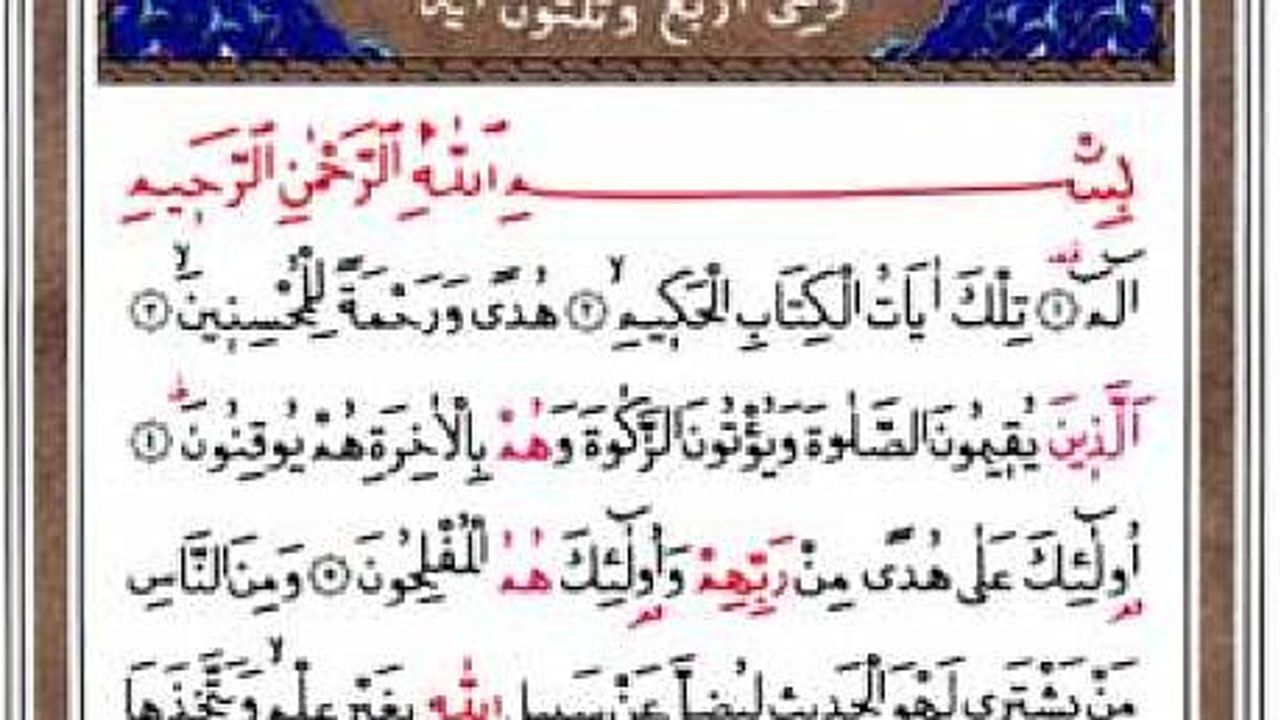 وهي اربع وثلثون اية
بِسْــــــــمِ اللّٰهِ الرَّحْمٰنِ الرَّحٖيمِ
الٓمٓ ﴿١﴾ تِلْكَ اٰيَاتُ الْكِتَابِ الْحَكٖيمِۙ ﴿٢﴾ هُدًى وَرَحْمَةً لِلْمُحْسِنٖينَۙ ﴿٣﴾
اَلَّذٖينَ يُقٖيمُونَ الصَّلٰوةَ وَيُؤْتُونَ الزَّكٰوةَ وَهُمْ بِالْاٰخِرَةِ هُمْ يُوقِنُونَۜ ﴿٤﴾
اُو۬لٰٓئِكَ عَلٰى هُدًى مِنْ رَبِّهِمْ وَاُو۬لٰٓئِكَ هُمُ الْمُفْلِحُونَ ﴿٥﴾ وَمِنَ النَّاسِ
مَنْ يَشْتَرٖي لَهْوَ الْحَدٖيثِ لِيُضِلَّ عَنْ سَبٖيلِ اللّٰهِ بِغَيْرِ عِلْمٍۙ وَيَتَّخِذَهَا